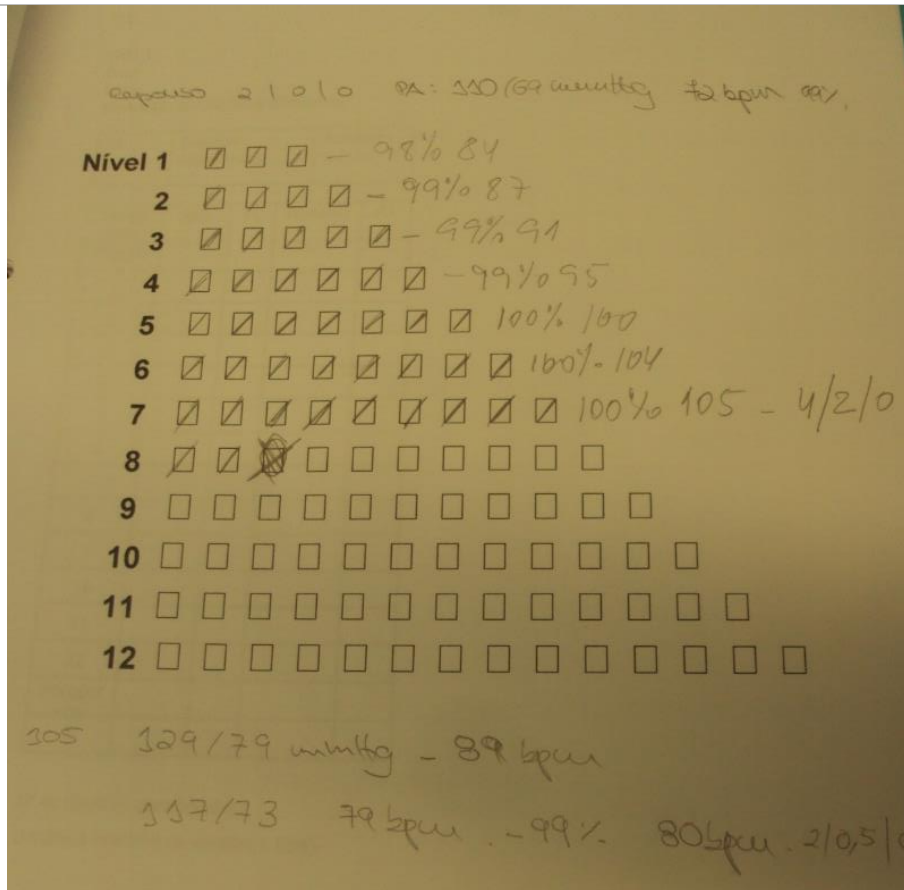 repouso 2 | 0 | 0 PA: 110/69 mmHg 72 bpm 99%.
Nível 1 - 98% 84
2 - 99% 87
3 - 99% 91
4 - 99% 95
5 100% 100
6 100%. 104
7 100% 105 - 4/2/0
8
9
10
11
12
105 129/79 mmHg - 89 bpm
117/73 79 bpm. - 99%. 80 bpm. 2/0,5/